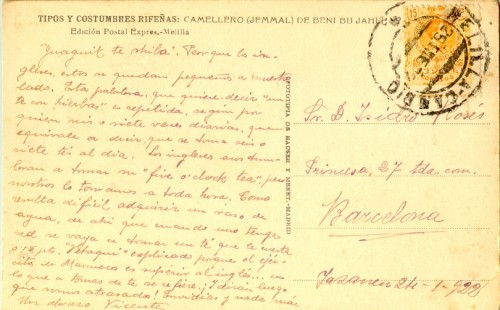 TIPOS Y COSTUMBRES RIFEÑAS: CAMELLERO (JEMMAL) DE BENI BU JAHI
Edición Postal Expres.-Melilla
te Mula". Porque los in-
gleses, estos se quedan pequeños a nuestro
lado. Esta palabra, que quiere decir "un
te con hierba", es repetida, según por
quien seis o siete veces diarias, que
equivale a decir que se toma seis o
siete tés al día. Los ingleses acostum-
bran a tomar su "five o'clock tea", pero
nosotros lo tomamos a toda hora. Como
resulta difícil adquirir un vaso de
agua, de ahí que cuando uno tenga
sed se vaya a tomar un té que le cueste
explicado porque el ejér-
cito de Marruecos es superior al inglés... en
lo que a tomas de te se refiere. ¡Y dirán luego
que somos atrasados! y nada más
Un abrazo Vicente
FOTOTIPIA DE HAUSER Y MENET.-MADRID
MELILLA
25 ENE
Sr. D. Isidro
Princesa, 27 tda. con.
Barcelona
24-1-928